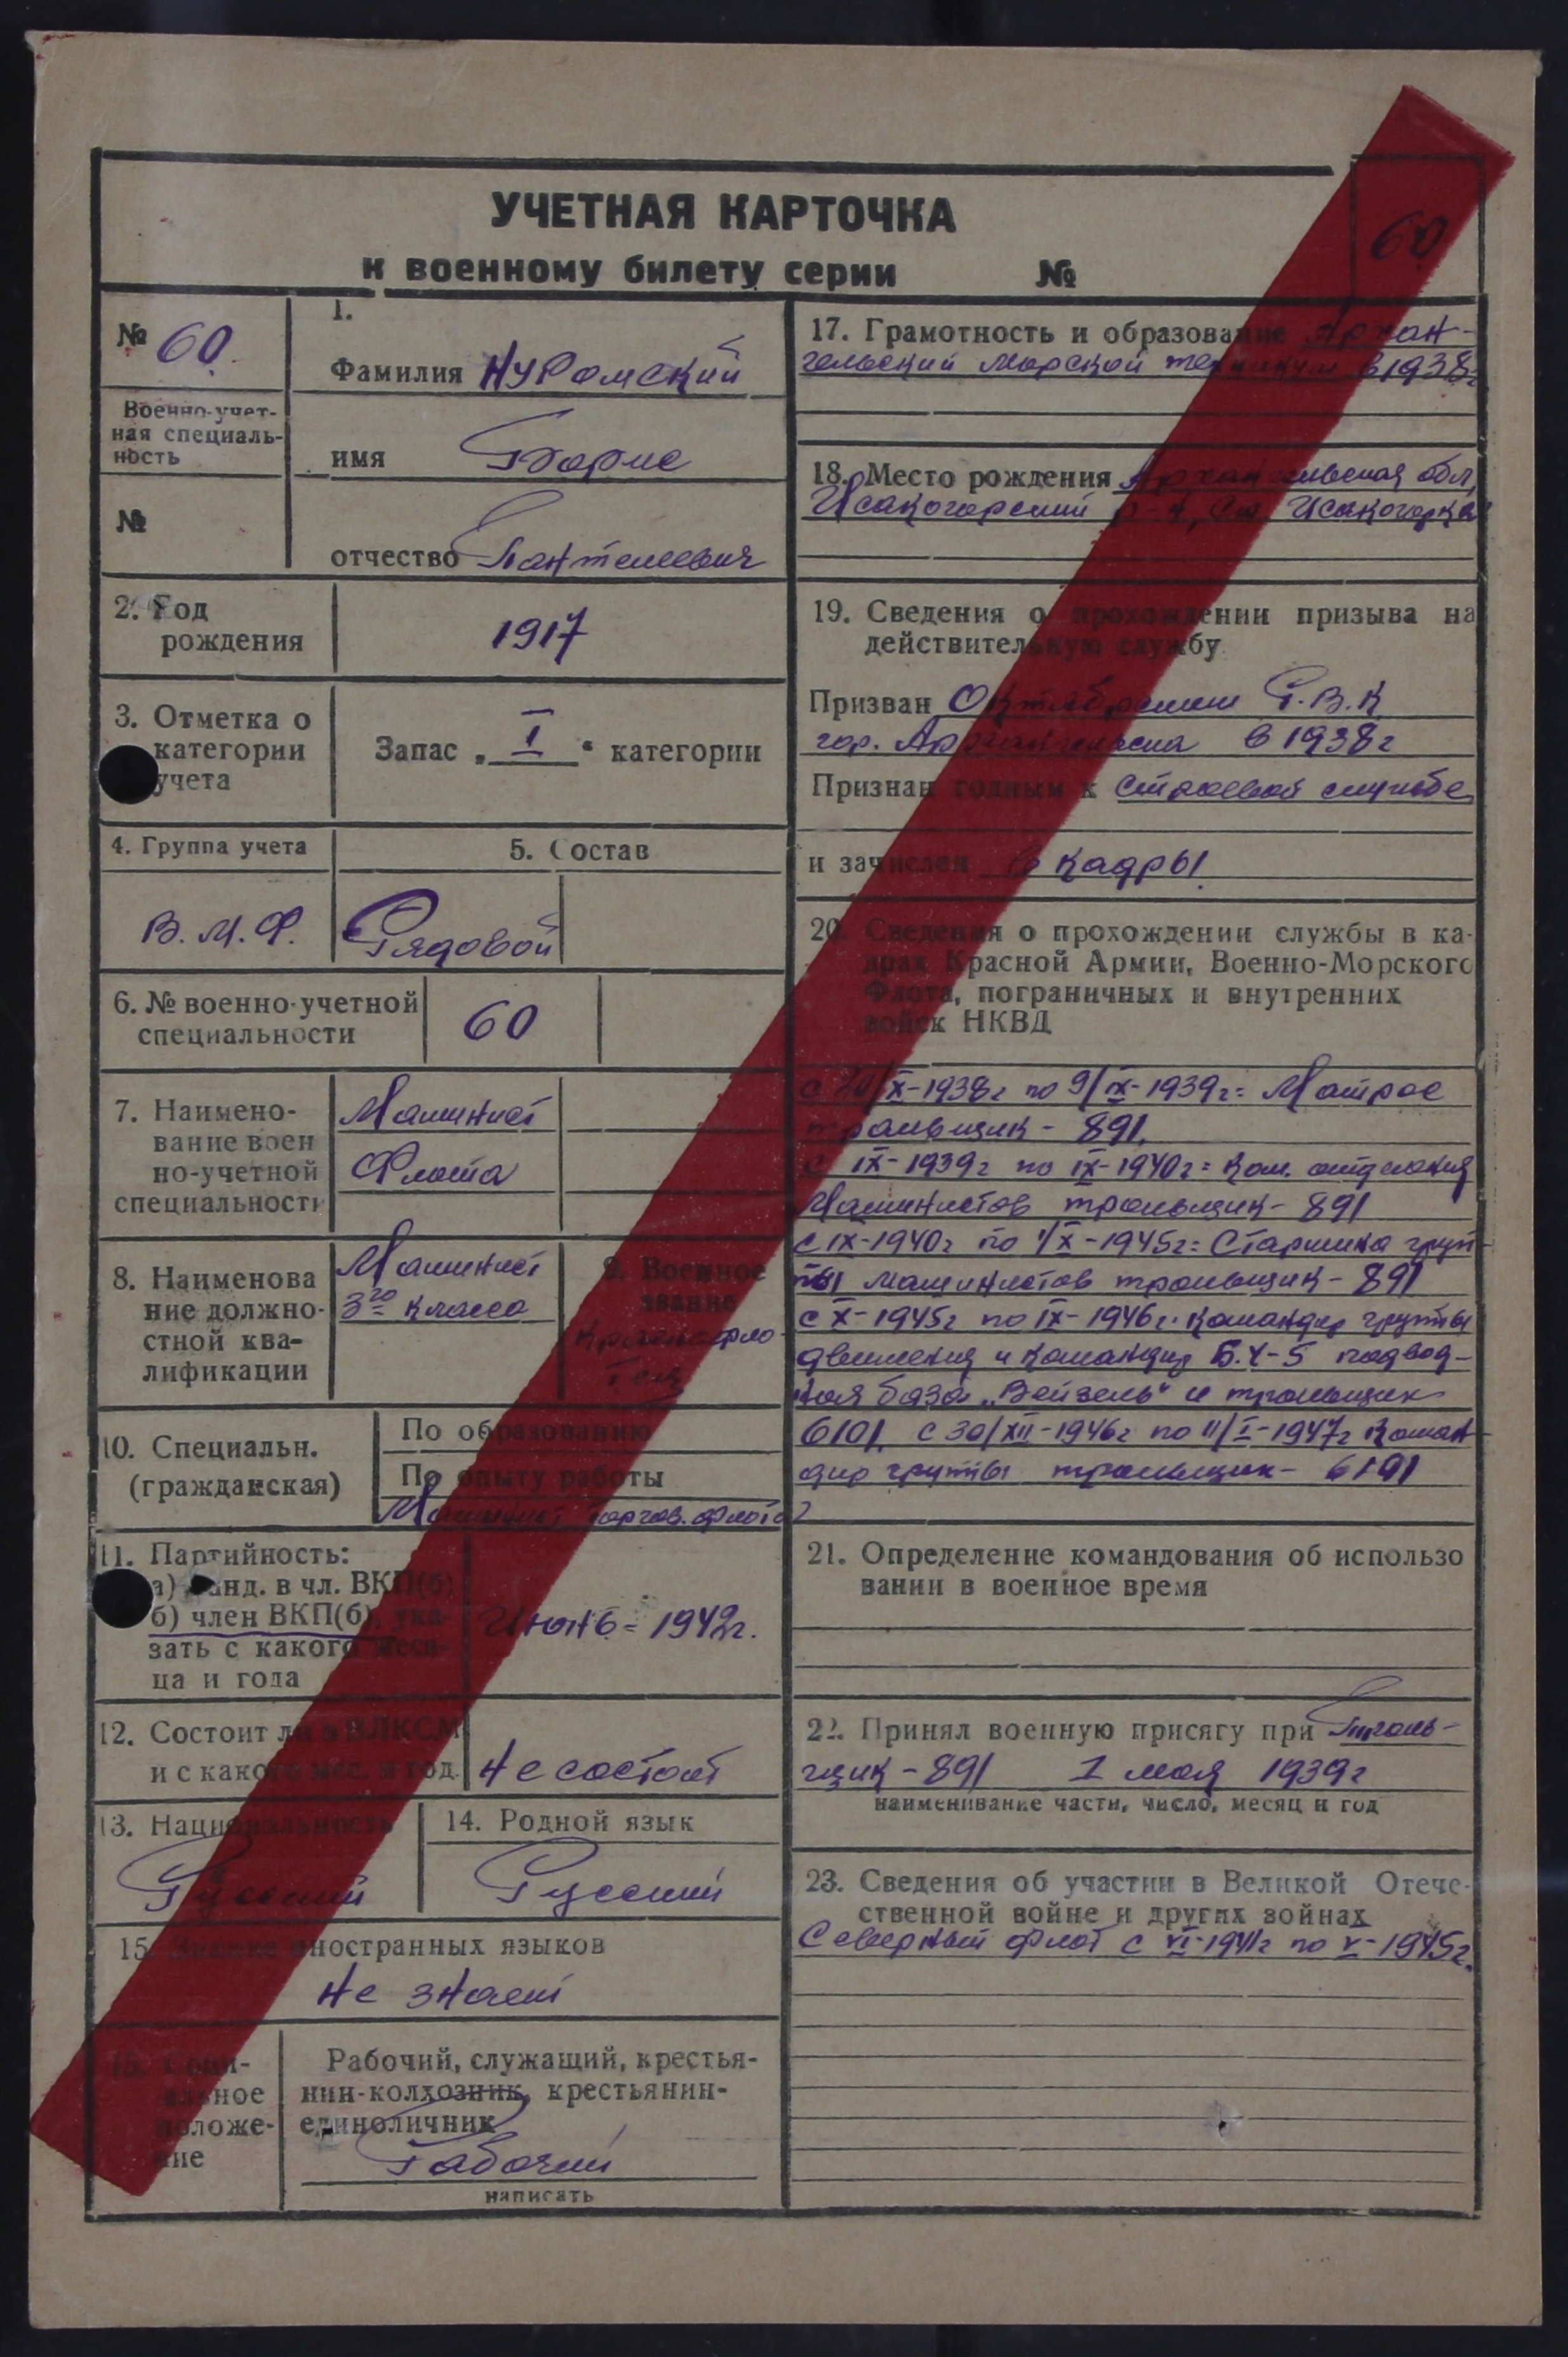 УЧЕТНАЯ КАРТОЧКА
к военному билету серии №
60
№ 60.
Военно-учет-
ная специаль-
ность
№
1.
Фамилия Нуромский
имя Борис
отчество Пантелеевич
2. Год
рождения
1917
3. Отметка о
категории
учета
Запас „ I " категории
4. Группа учета
5. Состав
В.М.Ф.
Рядовой
6. № военно-учетной
специальности
60
7. Наимено-
вание воен
но-учетной
специальности
Машинист
Флота
8. Наименова
ние должно-
стной ква-
лификации
Машинист
3го класса
9. Военное
звание
Краснофло-
10. Специальн.
(гражданская)
По образованию
По опыту работы
Машинист торгов. флота
11. Партийность:
а) канд. в чл. ВКП(б)
б) член ВКП(б), ука-
зать с какого меся-
ца и года
Июнь = 1942г.
12. Состоит ли в ВЛКСМ
и с какого мес. и год.
Не состоит
13. Национальность
Русский
14. Родной язык
Русский
15. Знание иностранных языков
Не знает
16. Соци-
альное
положе-
ние
Рабочий, служащий, крестья-
нин-колхозник, крестьянин-
единоличник
Рабочий
написать
17. Грамотность и образование Архан-
гельский Морской техникум в 1938г
18. Место рождения Архангельская обл,
Исакогорский р-н, ст. Исакогорка
19. Сведения о прохождении призыва на
действительную службу
Призван Октябрьским Р.В.К
гор. Архангельска в 1938г
Признан годным к строевой службе
и зачислен в кадры.
20. Сведения о прохождении службы в ка-
драх Красной Армии, Военно-Морского
Флота, пограничных и внутренних
войск НКВД
с 20/X-1938г по 9/IX-1939г = Матрос
тральщик - 891.
с IX-1939г по IX-1940г = Ком. отделения
Машинистов тральщик - 891
с IX-1940г по 1/X-1945г = Старшина груп-
пы машинистов тральщик - 891
с X-1945г по IX-1946г. Командир группы
движения и командир Б.Ч-5 подвод-
ная база „Вейзель" и тральщик
6101. с 30/XII-1946г по 11/I-1947г Коман-
дир группы тральщик - 6101
21. Определение командования об использо
вании в военное время
22. Принял военную присягу при Траль-
щик - 891 1 мая 1939г
наименивание части, число, месяц и год
23. Сведения об участии в Великой Отече-
ственной войне и других войнах
Северный флот с VI-1941г по V-1945г.